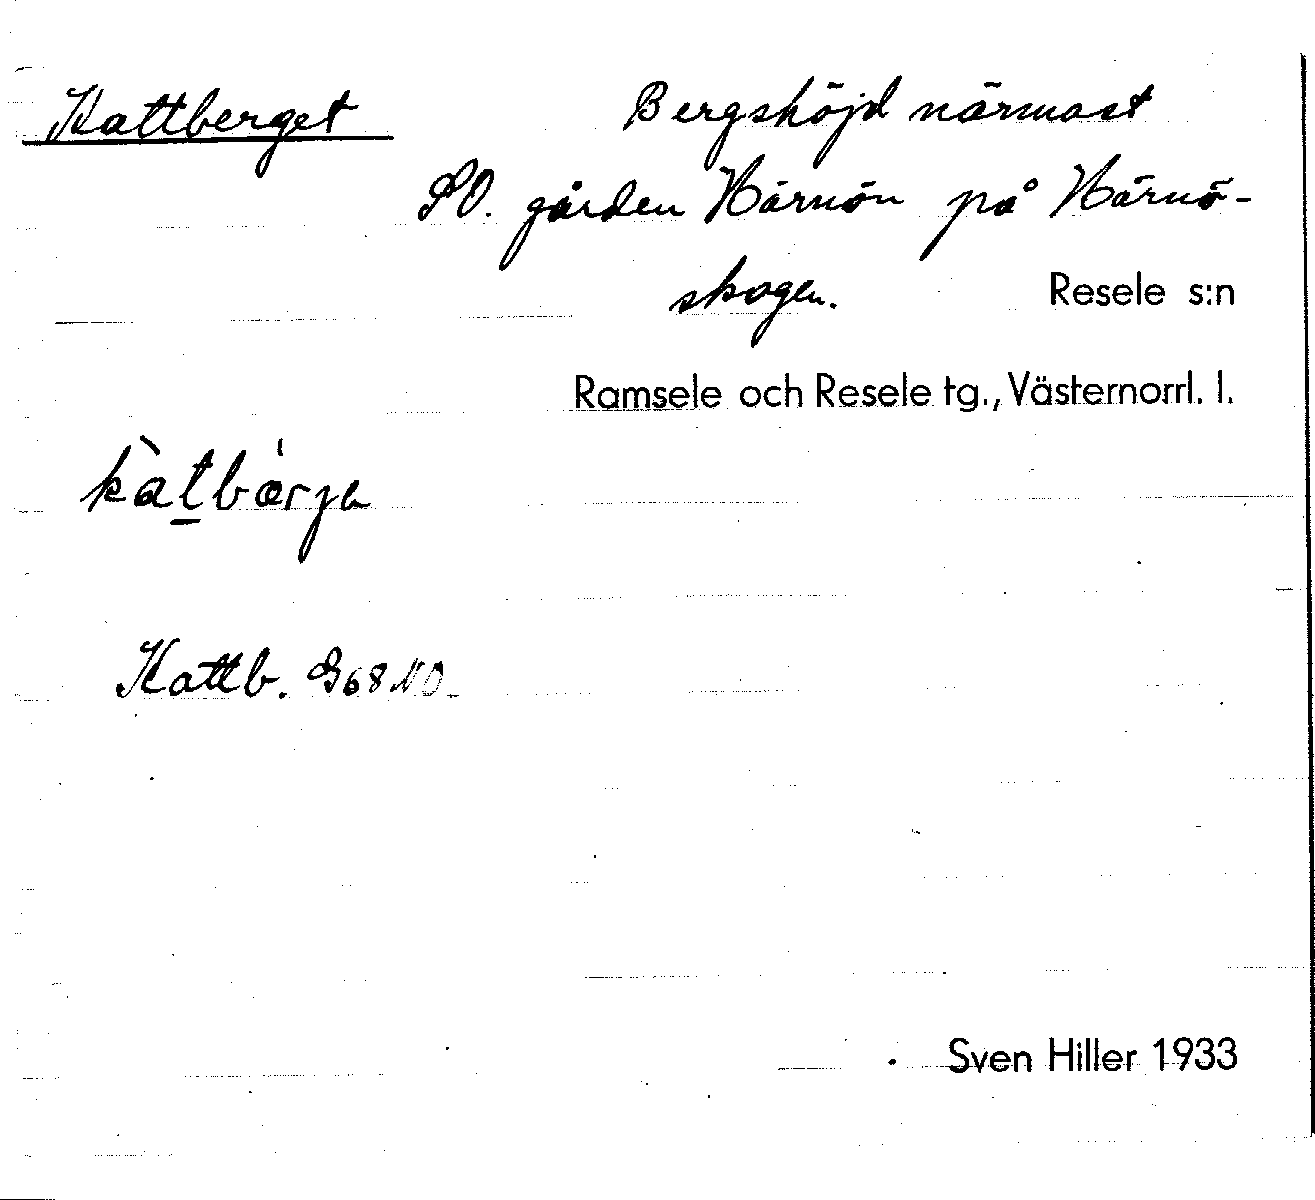 Kattberget
Bergshöjd närmast
SO. gården Härnön på Härnö-
skogen. Resele s:n
Ramsele och Resele tg., Västernorrl. l.
kàt̲bǽrja
Kattb. G68 NO.
Sven Hiller 1933